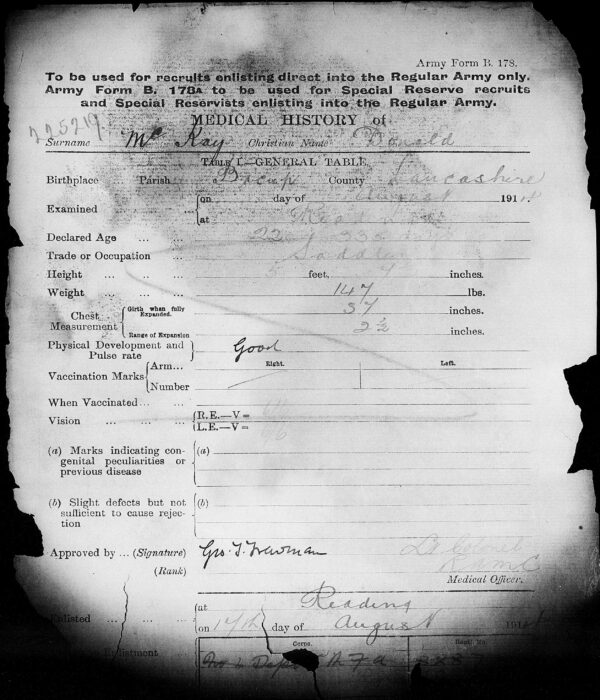 Army Form B. 178.
To be used for recruits enlisting direct into the Regular Army only.
Army Form B. 178A to be used for Special Reserve recruits
and Special Reservists enlisting into the Regular Army.
225219
MEDICAL HISTORY of
Surname McKay Christian Name Donald
TABLE I.—GENERAL TABLE.
Birthplace Parish Bacup County Lancashire
Examined
on day of August 1914
at
Declared Age ... ... 22 235
Trade or Occupation ... Saddler
Height ... ... ... 5 feet, 7 inches.
Weight ... ... ... 147 lbs.
Chest Measurement
Girth when fully Expanded. 37 inches.
Range of Expansion 2½ inches.
Physical Development and Pulse rate
Good
Vaccination Marks
Arm... Right. Left.
Number
When Vaccinated... ...
Vision ... ...
R.E.—V =
L.E.—V =
(a) Marks indicating con-
genital peculiarities or
previous disease
(a)
(b) Slight defects but not
sufficient to cause rejec-
tion
(b)
Approved by ... (Signature) Geo. T. Trewman Lt Colonel
(Rank) RAMC
Medical Officer.
Enlisted ... ...
at Reading
on 17th day of August 191
Corps. Regtl. No.
Enlistment No 2 Depot R F A